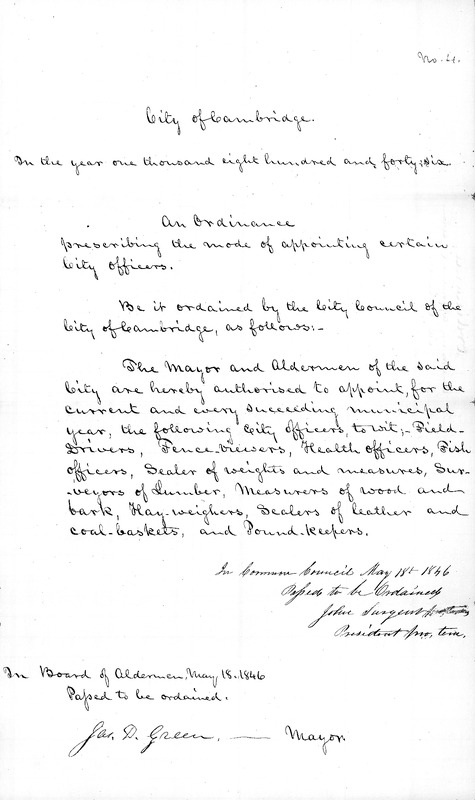 No. 4.
City of Cambridge.
In the year one thousand eight hundred and forty-six
An Ordinance
prescribing the mode of appointing certain
City officers.
Be it ordained by the City Council of the
City of Cambridge, as follows:-
The Mayor and Aldermen of the said
City are hereby authorised to appoint, for the
current and every succeeding municipal
year, the following City officers, to wit;- Field-
Drivers, Fence-viewers, Health officers, Fish
officers, Sealer of weights and measures, Sur-
-veyors of Lumber, Measurers of wood and
bark, Hay-weighers, Sealers of leather and
coal-baskets, and Pound-keepers.
In Common Council May 18th 1846
Passed to be Ordained
John Sargent
President pro. tem.
In Board of Aldermen, May 18. 1846
Passed to be ordained.
Jas. D. Green. — Mayor.